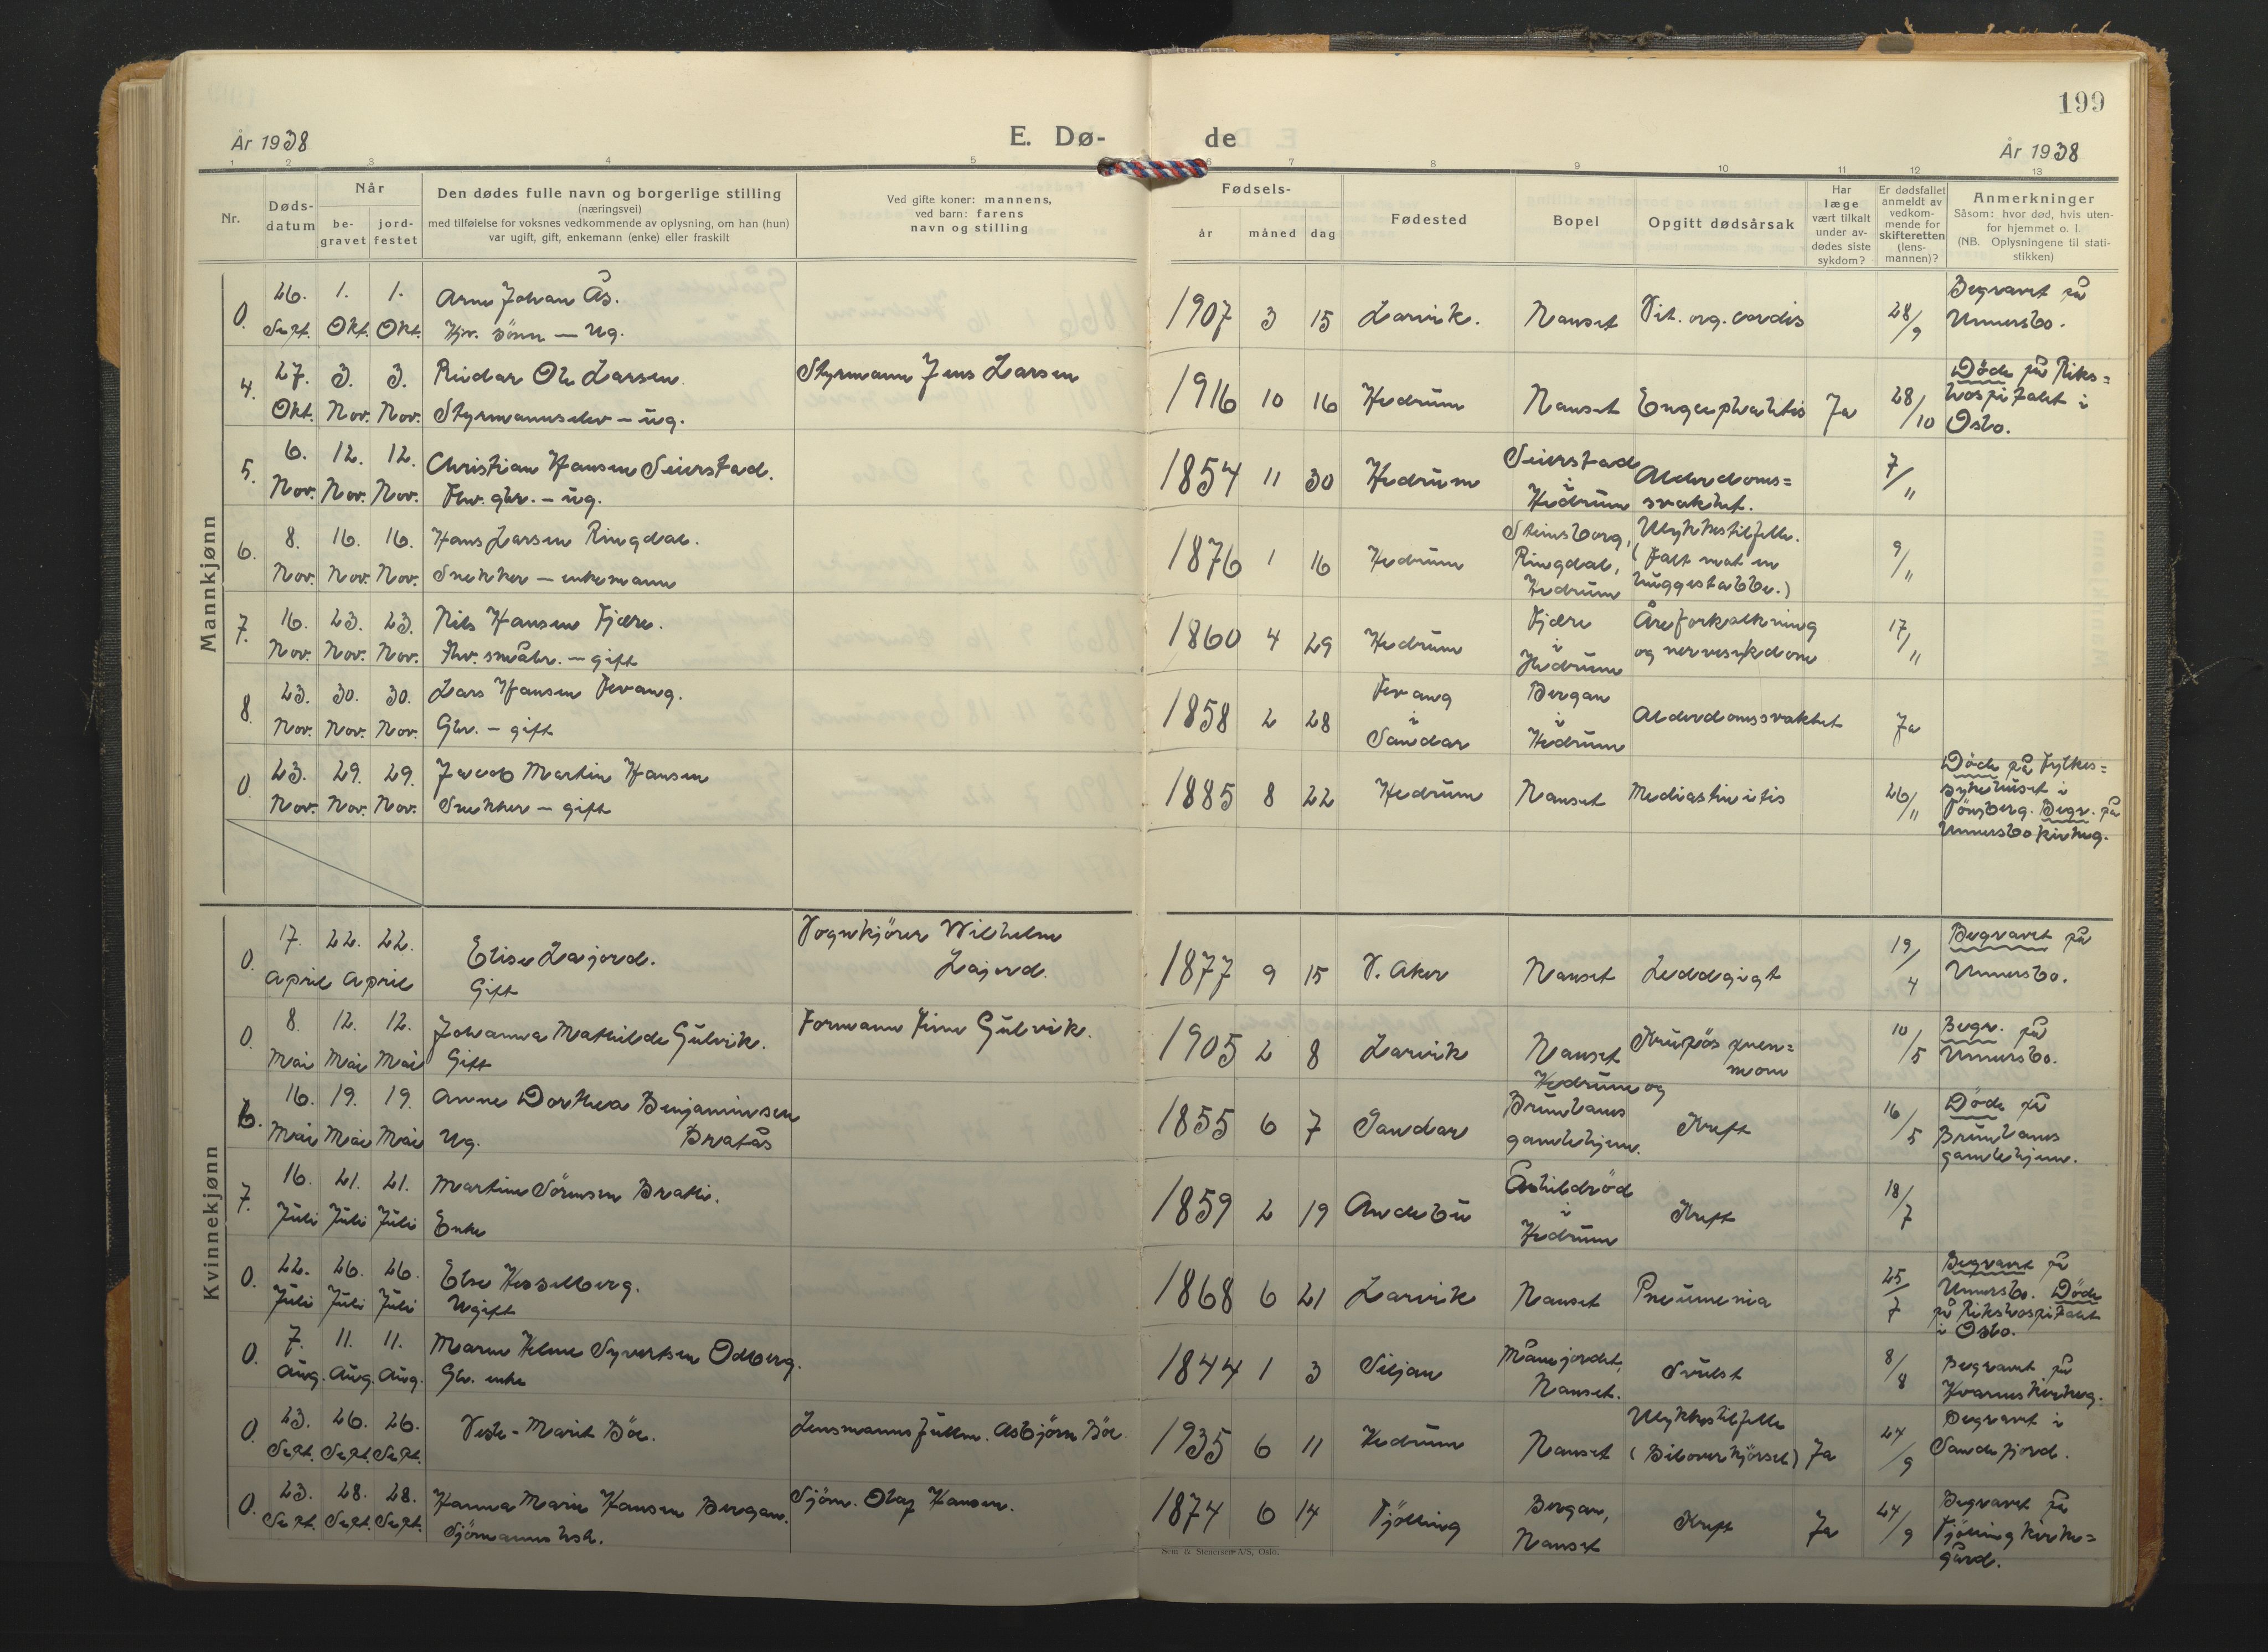 199
År 1938
E. Dø-
de
År 1938
1 2 3 4 5 6 7 8 9 10 11 12 13
Nr.
Døds-
datum
Når
be-
gravet
jord-
festet
Den dødes fulle navn og borgerlige stilling
(næringsvei)
med tilføielse for voksnes vedkommende av oplysning, om han (hun)
var ugift, gift, enkemann (enke) eller fraskilt
Ved gifte koner: mannens,
ved barn: farens
navn og stilling
Fødsels-
år måned dag
Fødested
Bopel
Opgitt dødsårsak
Har
læge
vært tilkalt
under av-
dødes siste
sykdom?
Er dødsfallet
anmeldt av
vedkom-
mende for
skifteretten
(lens-
mannen)?
Anmerkninger
Såsom: hvor død, hvis uten-
for hjemmet o. l.
(NB. Oplysningene til stati-
stikken)
Mannkjønn
0. 26. 1. 1. Arne Johan Ås. 1907 3 15 Larvik. Nanset Vit. org. cordis 28/9 Begravet på
Sept. Okt. Okt. Hjv. sönn – ug. Undersbo.
4. 27. 3. 3. Reidar Ole Larsen. Styrmann Jens Larsen 1916 10 16 Hedrum Nanset Ja 28/10 Döde på Riks=
Okt. Nov. Nov. Styrmannselev – ug. hospitalet i
Oslo.
5. 6. 12. 12. Christian Hansen Seierstad. 1854 11 30 Hedrum Seierstad Alderdoms= 7/11
Nov. Nov. Nov. Fhv. gbr. – ug. i
Hedrum svakhet.
6. 8. 16. 16. Hans Larsen Ringdal. 1876 1 16 Hedrum Steinsborg, Ulykkestilfelle. 9/11
Nov. Nov. Nov. Snekker – enkemann Ringdal, (Falt mot en
Hedrum huggestabbe.)
7. 16. 23. 23. Nils Hansen Fjære. 1860 4 29 Hedrum Fjære Åreforkalkning 17/11
Nov. Nov. Nov. Fhv. småbr. – gift i og nervesykdom
Hedrum
8. 23. 30. 30. Lars Hansen Fevang. 1858 2 28 Fevang Bergan Alderdomssvakhet Ja
Nov. Nov. Nov. Gbr. – gift i i
Sandar Hedrum
0. 23. 29. 29. Jacob Martin Hansen 1885 8 22 Hedrum Nanset Mediastinitis 26/11 Döde på Fylkes=
Nov. Nov. Nov. Snekker – gift sykehuset i
Tönsberg. Begr. på
Undersbo kirkeg.
Kvinnekjønn
0. 17. 22. 22. Elise Lajord. Vognkjörer Wilhelm 1877 9 15 V. Aker Nanset Leddgigt 19/4 Begravet på
April April Gift Lajord. Undersbo.
0. 8. 12. 12. Johanna Mathilde Gulvik. Formann Finn Gulvik. 1905 2 8 Larvik Nanset Krupös pneu= 10/5 Begr. på
Mai Mai Mai Gift moni Undersbo.
6. 16. 19. 19. Anne Dorthea Benjaminsen 1855 6 7 Sandar Hedrum og Kreft 16/5 Döde på
Mai Mai Mai Ug. Bratås Brunlanes Brunlanes
gamlehjem. gamlehjem.
7. 16. 21. 21. Martine Sörensen Bratli. 1859 2 19 Andebu Askildröd Kreft 18/7
Juli Juli Juli Enke i
Hedrum
0. 22. 26. 26. Elise Hesselberg. 1868 6 21 Larvik Nanset Pneumonia 25/7 Begravet på
Juli Juli Juli Ugift Undersbo. Döde
på Rikshospitalet
i Oslo.
0. 7. 11. 11. Maren Helene Syvertsen Odberg. 1844 1 3 Siljan Månejordet, Svulst 8/8 Begravet på
Aug. Aug. Aug. Gbr. enke Nanset. Kvarnes kirkeg.
0. 23. 26. 26. Vesle-Marit Böe. Lensmannsfullm. Asbjörn Böe 1935 6 11 Hedrum Nanset Ulykkestilfelle Ja 24/9 Begravet i
Sept. Sept. Sept. (Biloverkjörsel) Sandefjord.
0. 23. 28. 28. Hanna Marie Hansen Bergan. Sjöm. Olaf Hansen. 1874 6 14 Tjölling Bergan, Kreft Ja 24/9 Begravet på
Sept. Sept. Sept. Sjömanns hstr. Nanset Tjölling kirke=
gård.
Sem & Stenersen A/S, Oslo.